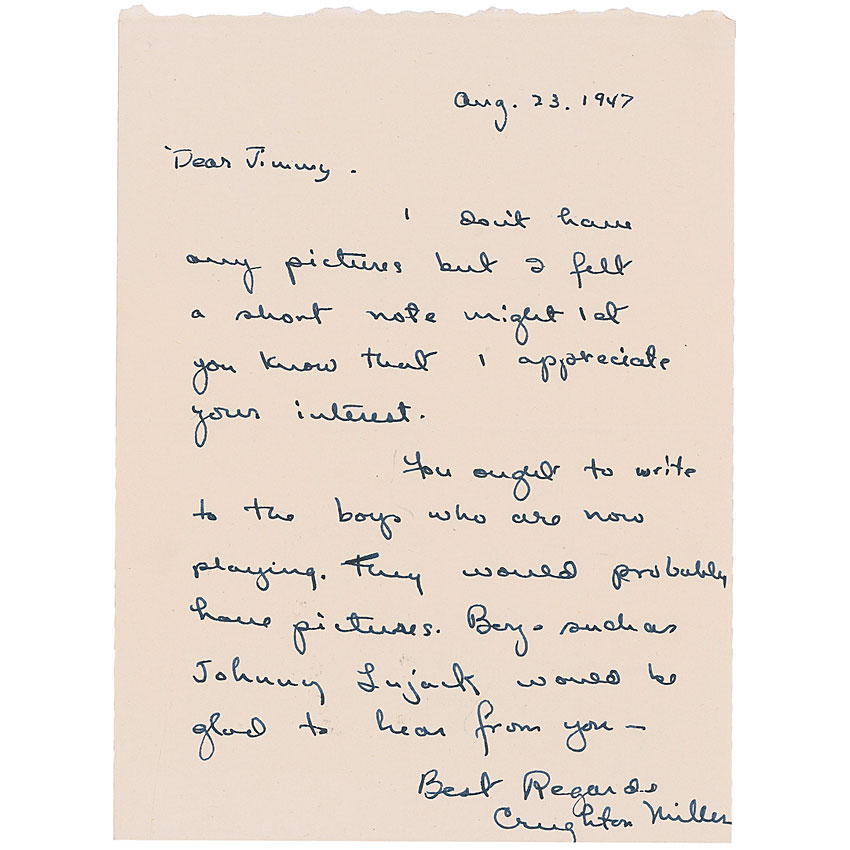 Aug. 23. 1947
Dear Jimmy.
I don't have
any pictures but I felt
a short note might let
you know that I appreciate
your interest.
You ought to write
to the boys who are now
playing. They would probably
have pictures. Boys such as
Johnny Lujack would be
glad to hear from you —
Best Regards
Creighton Miller